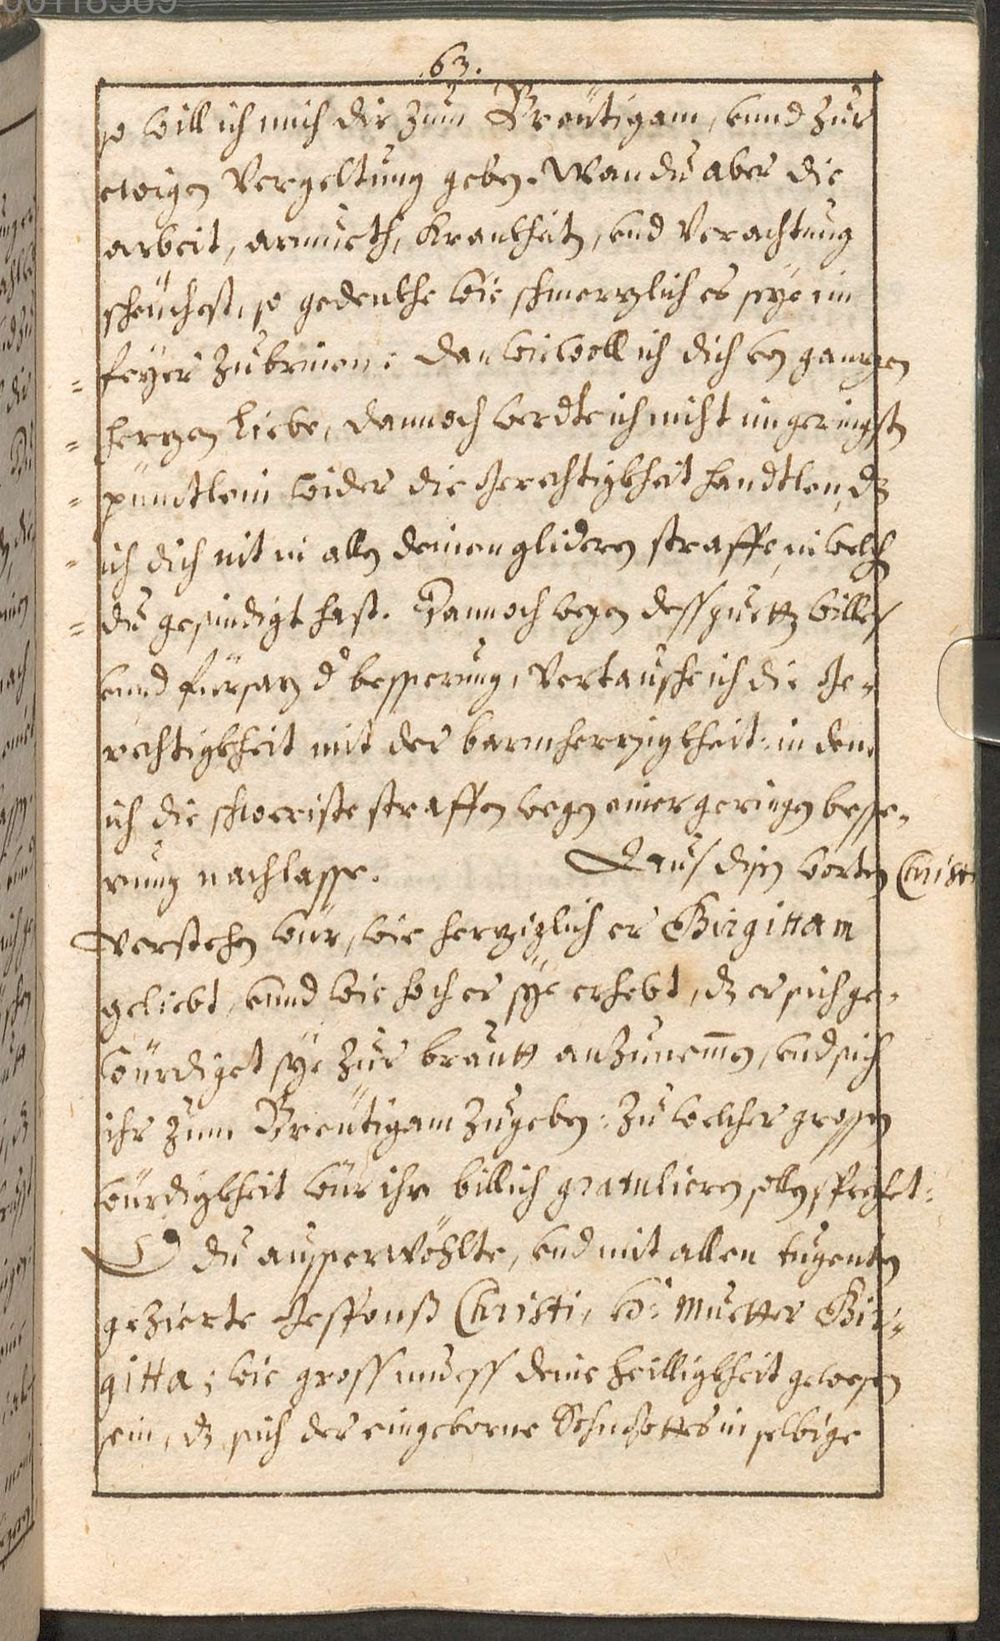 00118569
63.
so will ich mich dir zum Breütigam, vnnd zur
ewigen Vergeltung geben. Wan du aber die
arbeit, armueth, Krankheiten, vnd Verachtung
scheüchest, so gedenkhe wie schmerzlich es seye im
feyer zu brinnen: dan wiewoll ich dich von ganzen
herzen Liebe, dannoch werdte ich nicht im geringsten
pünctlein wider die Gerechtigkheit handtlen, dz
ich dich nit in allen deinen glideren straffe, in welchen
du gesündigt hast. Dannoch wegen dess guetten willes
vnnd fürsaz der besserung, Vertausche ich die Ge-
rechtigkheit mit der barmherzigkheit: in dem
ich die schweriste straffen wegen einer geringen besse-
rung nachlasse. Aus disen worten Christi
verstehen wür, wie herziglich er Birgittam
geliebt, vnnd wie hoch er sye erhebt, dz er sich ge-
würdiget sye zur brautt anzunemen, vnd sich
ihr zum Breütigam zugeben: zu welcher grossen
würdigkheit wür ihr billich gratulieren sollen, sprechet:
O du ausserwöhlte, vnd mit allen tugenten
gezierte Gesponß Christi, h: Muetter Bir-
gitta; wie gross muess deine heilligkheit gewesen
sein, dz sich der eingeborne Sohn Gottes in selbige